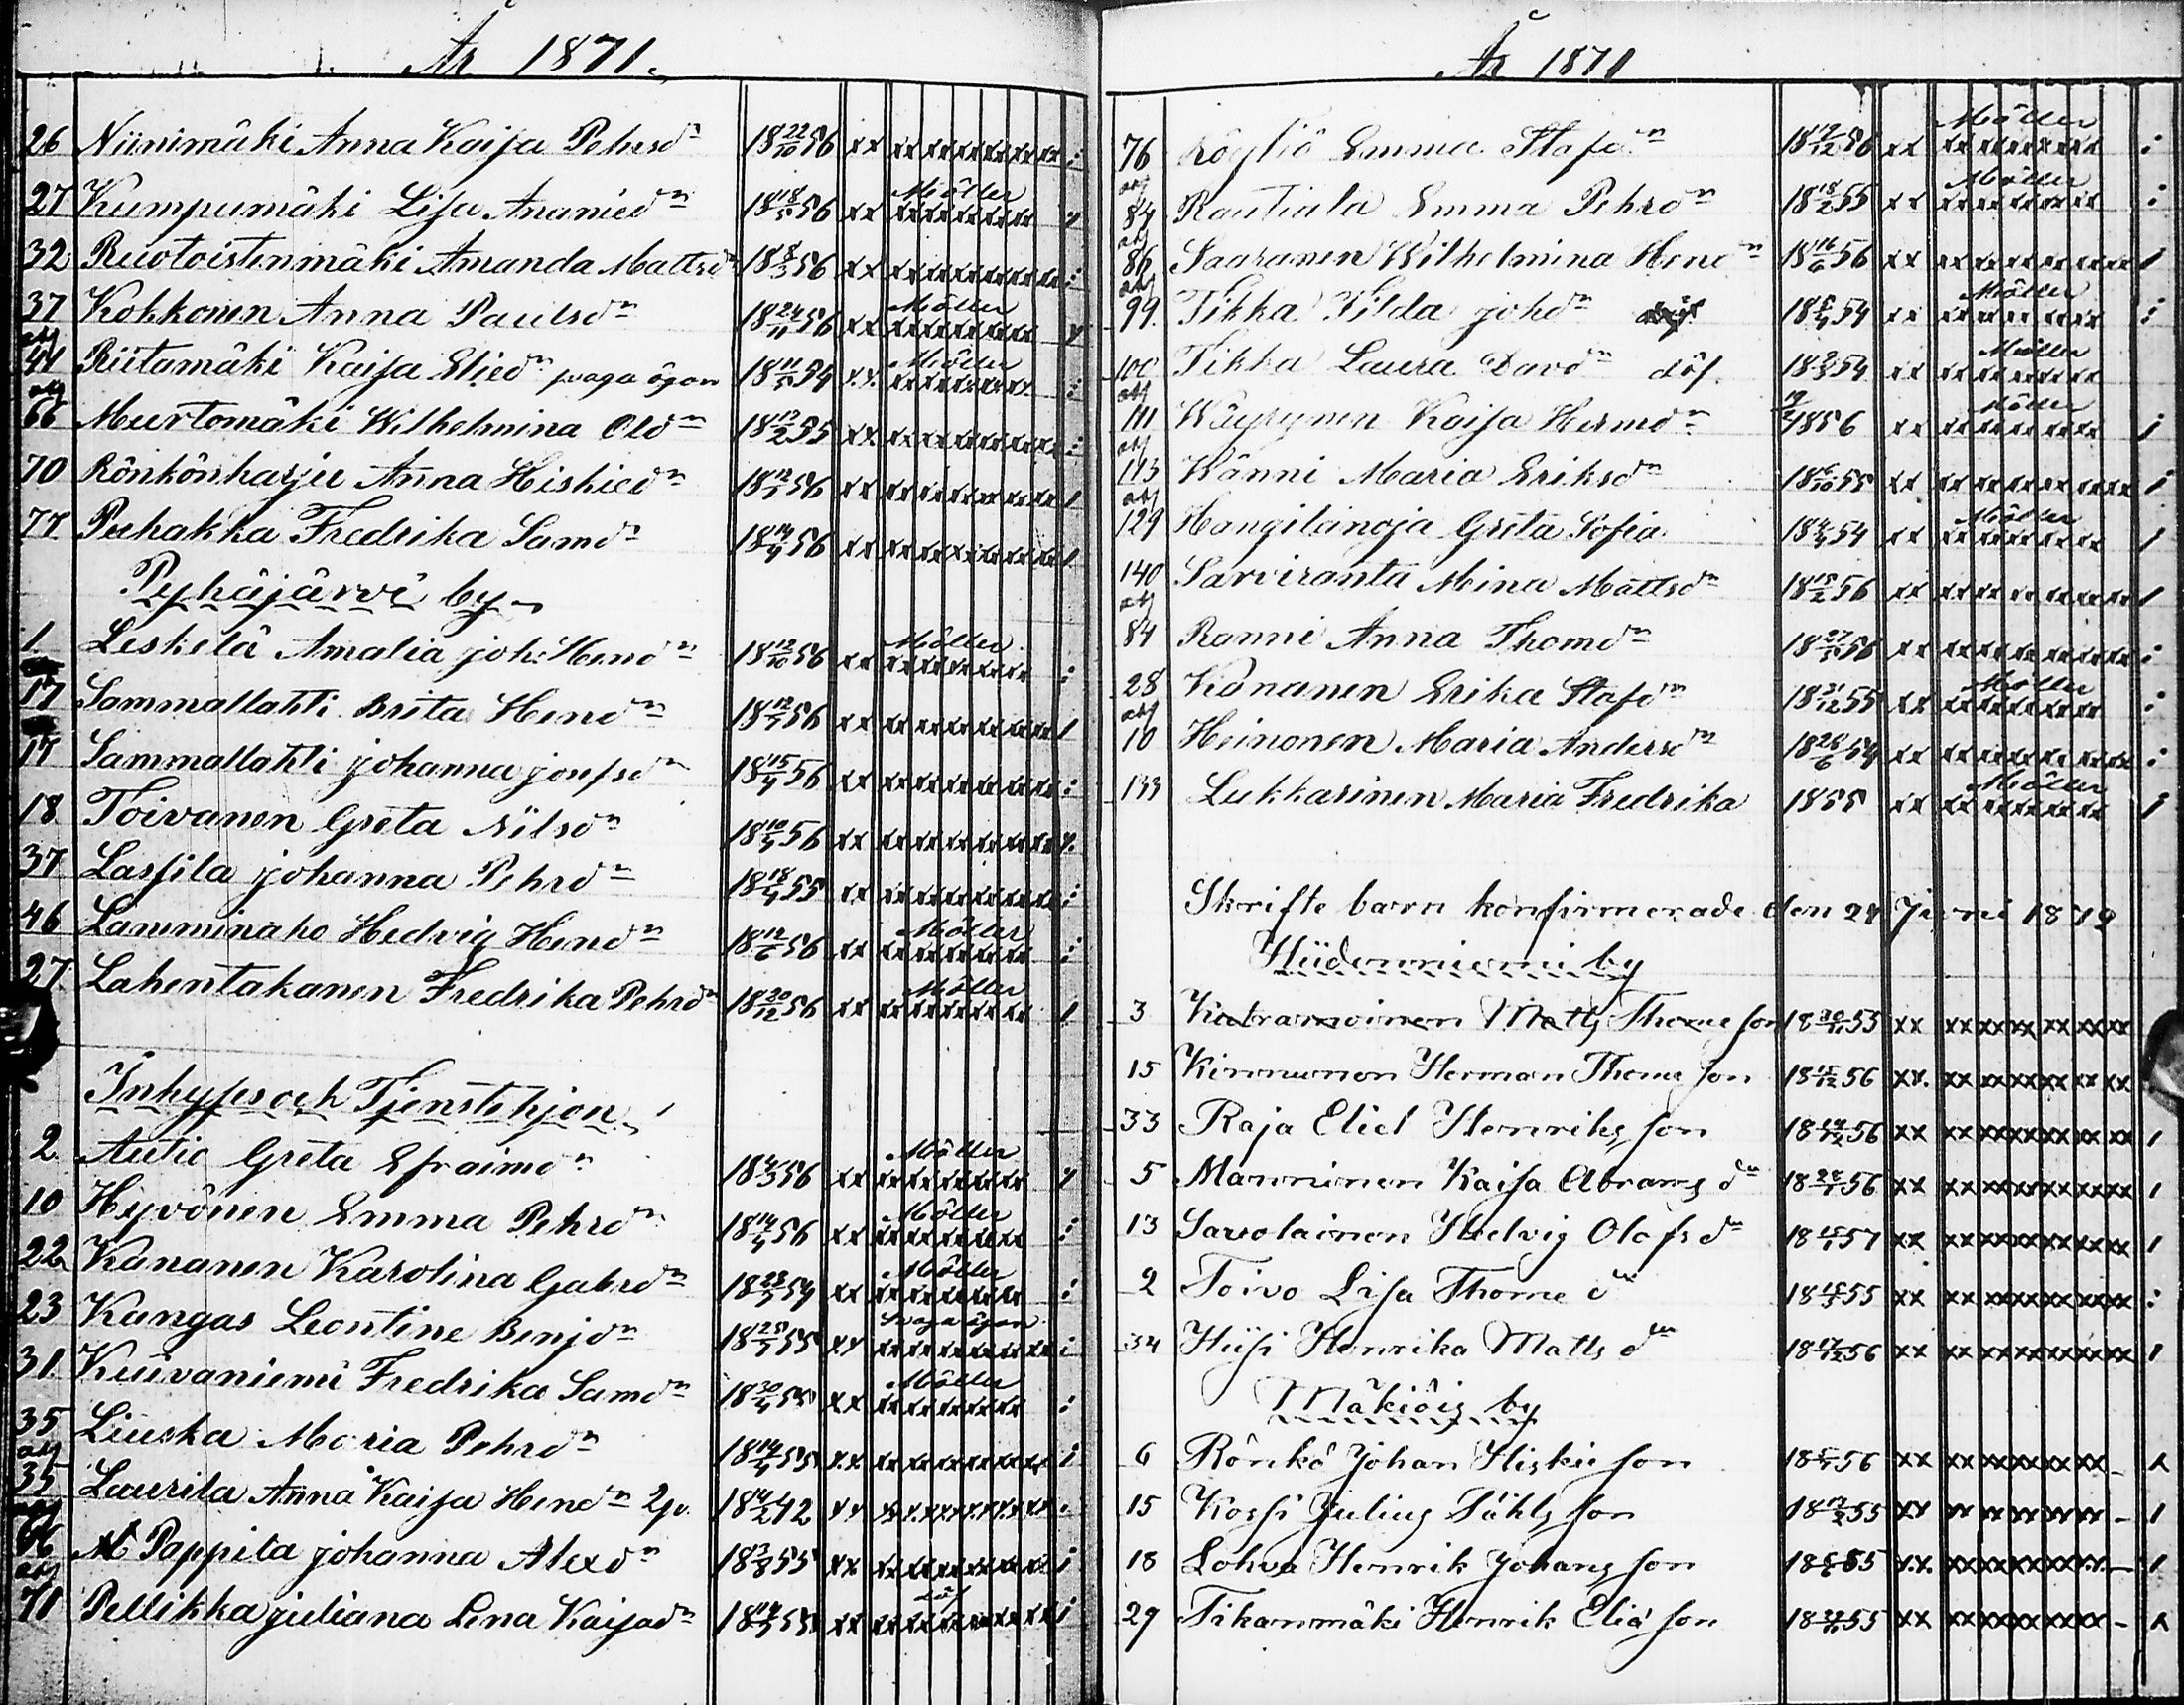 År 1871.
26 Niinimäki Anna Kaisa Pehrsdn 18 22/10 56 xx xxxxxxxxxx
27 Kumpumäki Lisa Ananiedn 1856 xx Möller xxxxxxxx
32 Ruotoistenmäki Amanda Mattsdn 18 8/3 56 xx xxxxxxxxxx
37 Kokkonen Anna Paulsdn 18 24/11 56 xx Möller xxxxxxxx
41 Riitamäki Kaisa Eliedn svaga ögon 1854 xx Möller xxxxxxxx
66 Murtomäki Wilhelmina Oldn 18 12/2 55 xx xxxxxxxxxx
70 Rönkönharju Anna Hiskiedn 1856 xx xxxxxxxxxx
77 Puhakka Fredrika Samdn 18 14/4 56 xx xxxxxxxxxx
Pyhäjärvi by
1 Leskelä Amalia joh: Hendn 18 12/10 56 xx Möller xxxxxxxx
17 Sammallahti Brita Hendn 1856 xx xxxxxxxxxx
17 Sammallahti johanna josefsdn 18 15/4 56 xx xxxxxxxxxx
18 Toivanen Greta Nilsdn 1856 xx xxxxxxxxxx
37 Lassila johanna Pehrdn 1855 xx xxxxxxxxxx
46 Lamminaho Hedvig Hendn 18 12/6 56 xx Möller xxxxxxxx
27 Lahentakanen Fredrika Pehrdn 18 20/12 56 xx Möller xxxxxxxx
Inhyses och Tjenstehjon
2 Autio Greta Efraimdn 18 4/3 56 xx Möller xxxxxxxx
10 Hyvönen Emma Pehrdn 18 14/4 56 xx Möller xxxxxxxx
22 Kananen Karolina Gabrdn 1854 xx Möller xxxxxxxx
23 Kangas Leontine Benjdn 1855 xx Svaga ögon xxxxxxxxxx
31 Kuivaniemi Fredrika Samdn 1855 xx Möller xxxxxxxx
35 Liuska Maria Pehrdn 18 14/4 55 xx xxxxxxxxxx
35 Laurila Anna Kaisa Hendn 1842 xx xxxxxxxxxx
66 Pappila johanna Alexdn 18 3/8 55 xx xxxxxxxxxx
71 Pellikka juliana Lena Kaijadn 1855 xx döf xxxxxxxxxx
År 1871
76 Köyliö Emma Stafdn 1856 xx Möller xxxxxxxx
84 Rautiala Emma Pehrdn 18 18/2 55 xx Möller xxxxxxxx
86 Saaranen Wilhelmina Hendn 18 16/6 56 xx xxxxxxxxxx
99. Tikka Tilda johdn 1854 xx Möller xxxxxxxx
100 Tikka Laura Davdn döf. 1854 xx Möller xxxxxxxx
111 Wäyrynen Kaisa Hermdn 1856 xx Möller xxxxxxxx
113 Wänni Maria Eriksdn 18 6/10 55 xx xxxxxxxxxx
129 Hangilanoja Greta Sofia 1854 xx Möller xxxxxxxx
140 Sarviranta Mina Mattsdn 18 15/2 56 xx xxxxxxxxxx
84 Ranni Anna Thomdn 1856 xx xxxxxxxxxx
28 Kananen Erika Stafdn 18 21/12 55 xx Möller xxxxxxxx
10 Heinonen Maria Andersdn 18 26/6 54 xx xxxxxxxxxx
133 Lukkarinen Maria Fredrika 1855 xx Möller xxxxxxxx
Skrifte barn konfirmerade den 24 Juni 1872
Hiidenniemi by
3 Katramoinen Matts Thome son 1855 xx xx xx xx xx xx
15 Kinnunen Herman Thome son 18 15/12 56 xx. xx xx xx xx xx xx
33 Raja Eliel Henriks son 1856 xx xxxxxxxxxxxx
5 Manninen Kaisa Abrams dn 1856 xx xxxxxxxxxxxx
13 Savolainen Hedvig Olofs dn 1857 xx xxxxxxxxxxxx
2 Toivo Lisa Thome dn 1855 xx xxxxxxxxxxxx
34 Hiisi Henrika Matts dn 1856 xx xxxxxxxxxxxx
Mäkiöis by
6 Rönkö Johan Hiskie son 1856 xx xxxxxxxxxx
15 Kossi Julius Påhls son 1855 xx xxxxxxxxxx
18 Lohva Henrik Johans son 1855 x.x. xxxxxxxxxx
29 Tikanmäki Henrik Elia son 1855 xx xxxxxxxxxx